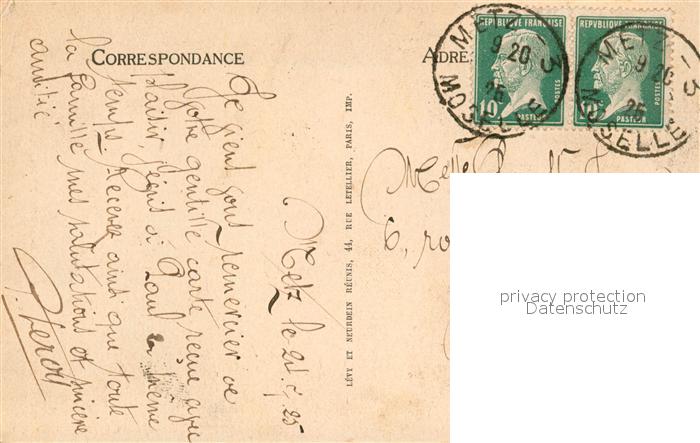 CORRESPONDANCE
ADRE
METZ - 3
9 20
25
MOSELLE
METZ - 3
9 20
25
MOSELLE
REPUBLIQUE FRANÇAISE
10
POSTES
PASTEUR
REPUBLIQUE FRANÇAISE
POSTES
PASTEUR
Metz le 21. 7. 25
Je vient vous remercier de
Votre gentille carte reçue avec
plaisir, j'écris à Paul en meme
temps. Recevez ainsi que toute
la famille mes salutations et sincère
amitié
LÉVY ET NEURDEIN RÉUNIS, 44, RUE LETELLIER, PARIS, IMP.
Melle
6, ro
privacy protection
Datenschutz